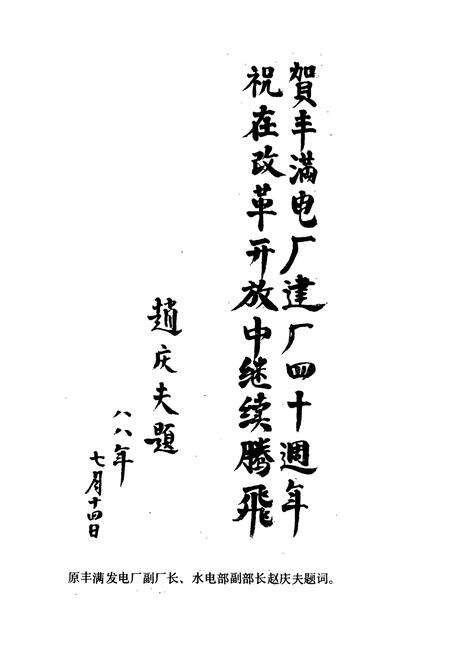 賀丰满电厂建厂四十週年
祝在改革开放中继续腾飛
趙庆夫题
八八年
七月十四日
原丰满发电厂副厂长、水电部副部长赵庆夫题词。